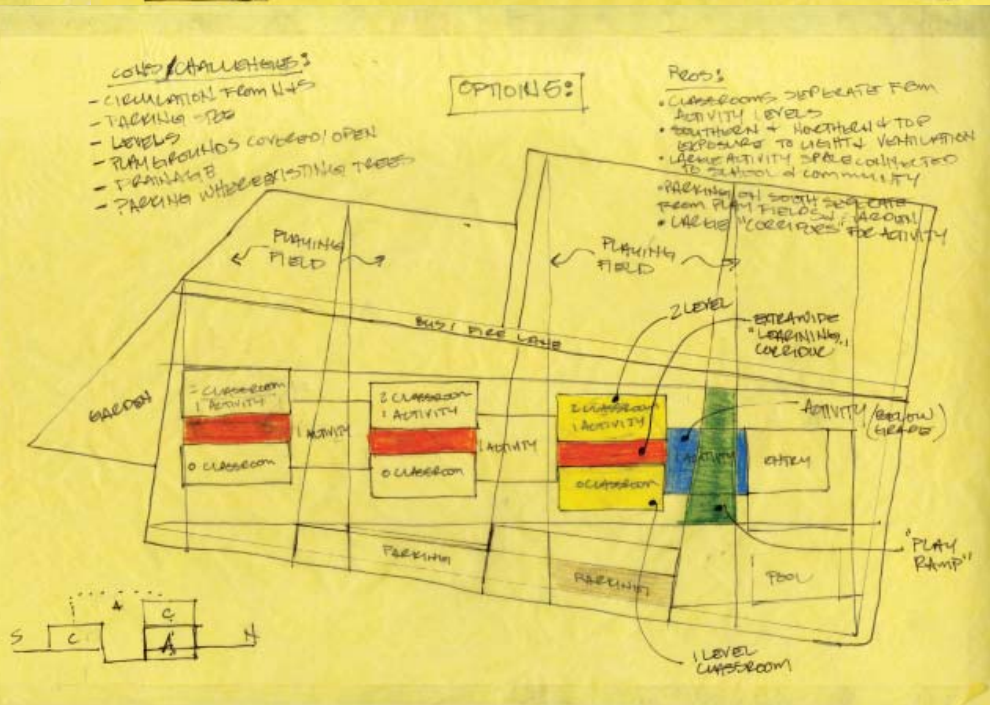 CONS/CHALLENGES:
- CIRCULATION FROM N+S
- PARKING
- LEVELS
- PLAYGROUNDS COVERED/OPEN
- DRAINAGE
- PARKING WHERE EXISTING TREES
OPTION 5:
PROS:
• CLASSROOMS SEPERATE FROM
ACTIVITY LEVELS
• SOUTHERN & NORTHERN & TOP
EXPOSURE TO LIGHT & VENTILATION
• LARGE ACTIVITY SPACE CONNECTED
TO SCHOOL & COMMUNITY
• PARKING ON SOUTH SEPERATE
FROM PLAY FIELDS
• LARGE "CORRIDORS" FOR ACTIVITY
PLAYING
FIELD
PLAYING
FIELD
BUS/ FIRE LANE
2 LEVEL
EXTRAWIDE
"LEARNING"
CORRIDOR
GARDEN
2 CLASSROOM
1 ACTIVITY
0 CLASSROOM
1 ACTIVITY
2 CLASSROOM
1 ACTIVITY
0 CLASSROOM
1 ACTIVITY
2 CLASSROOM
1 ACTIVITY
0 CLASSROOM
1 ACTIVITY
ENTRY
ACTIVITY (BELOW
GRADE)
PARKING
PARKING
POOL
"PLAY
RAMP"
1 LEVEL
CLASSROOM
S C A C A N